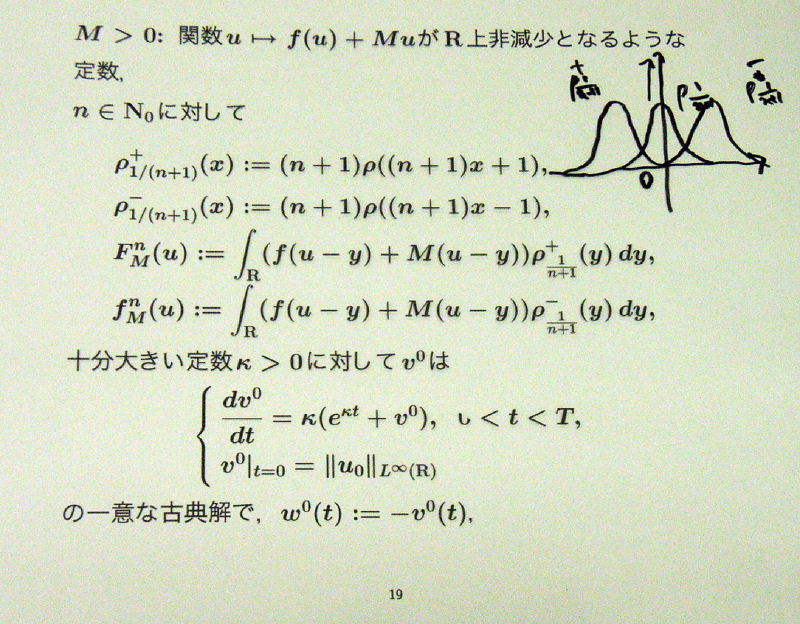 M > 0: 関数 u ↦ f(u) + Mu が R 上非減少となるような
定数,
n ∈ N₀ に対して
ρ⁺_{1/(n+1)}(x) := (n + 1)ρ((n + 1)x + 1),
ρ⁻_{1/(n+1)}(x) := (n + 1)ρ((n + 1)x − 1),
F^n_M(u) := ∫_R (f(u − y) + M(u − y))ρ⁺_{1/(n+1)}(y) dy,
f^n_M(u) := ∫_R (f(u − y) + M(u − y))ρ⁻_{1/(n+1)}(y) dy,
十分大きい定数 κ > 0 に対して v⁰ は
dv⁰/dt = κ(e^{κt} + v⁰), < t < T,
v⁰|_{t=0} = ‖u₀‖_{L^∞(R)}
の一意な古典解で, w⁰(t) := −v⁰(t),
19
0